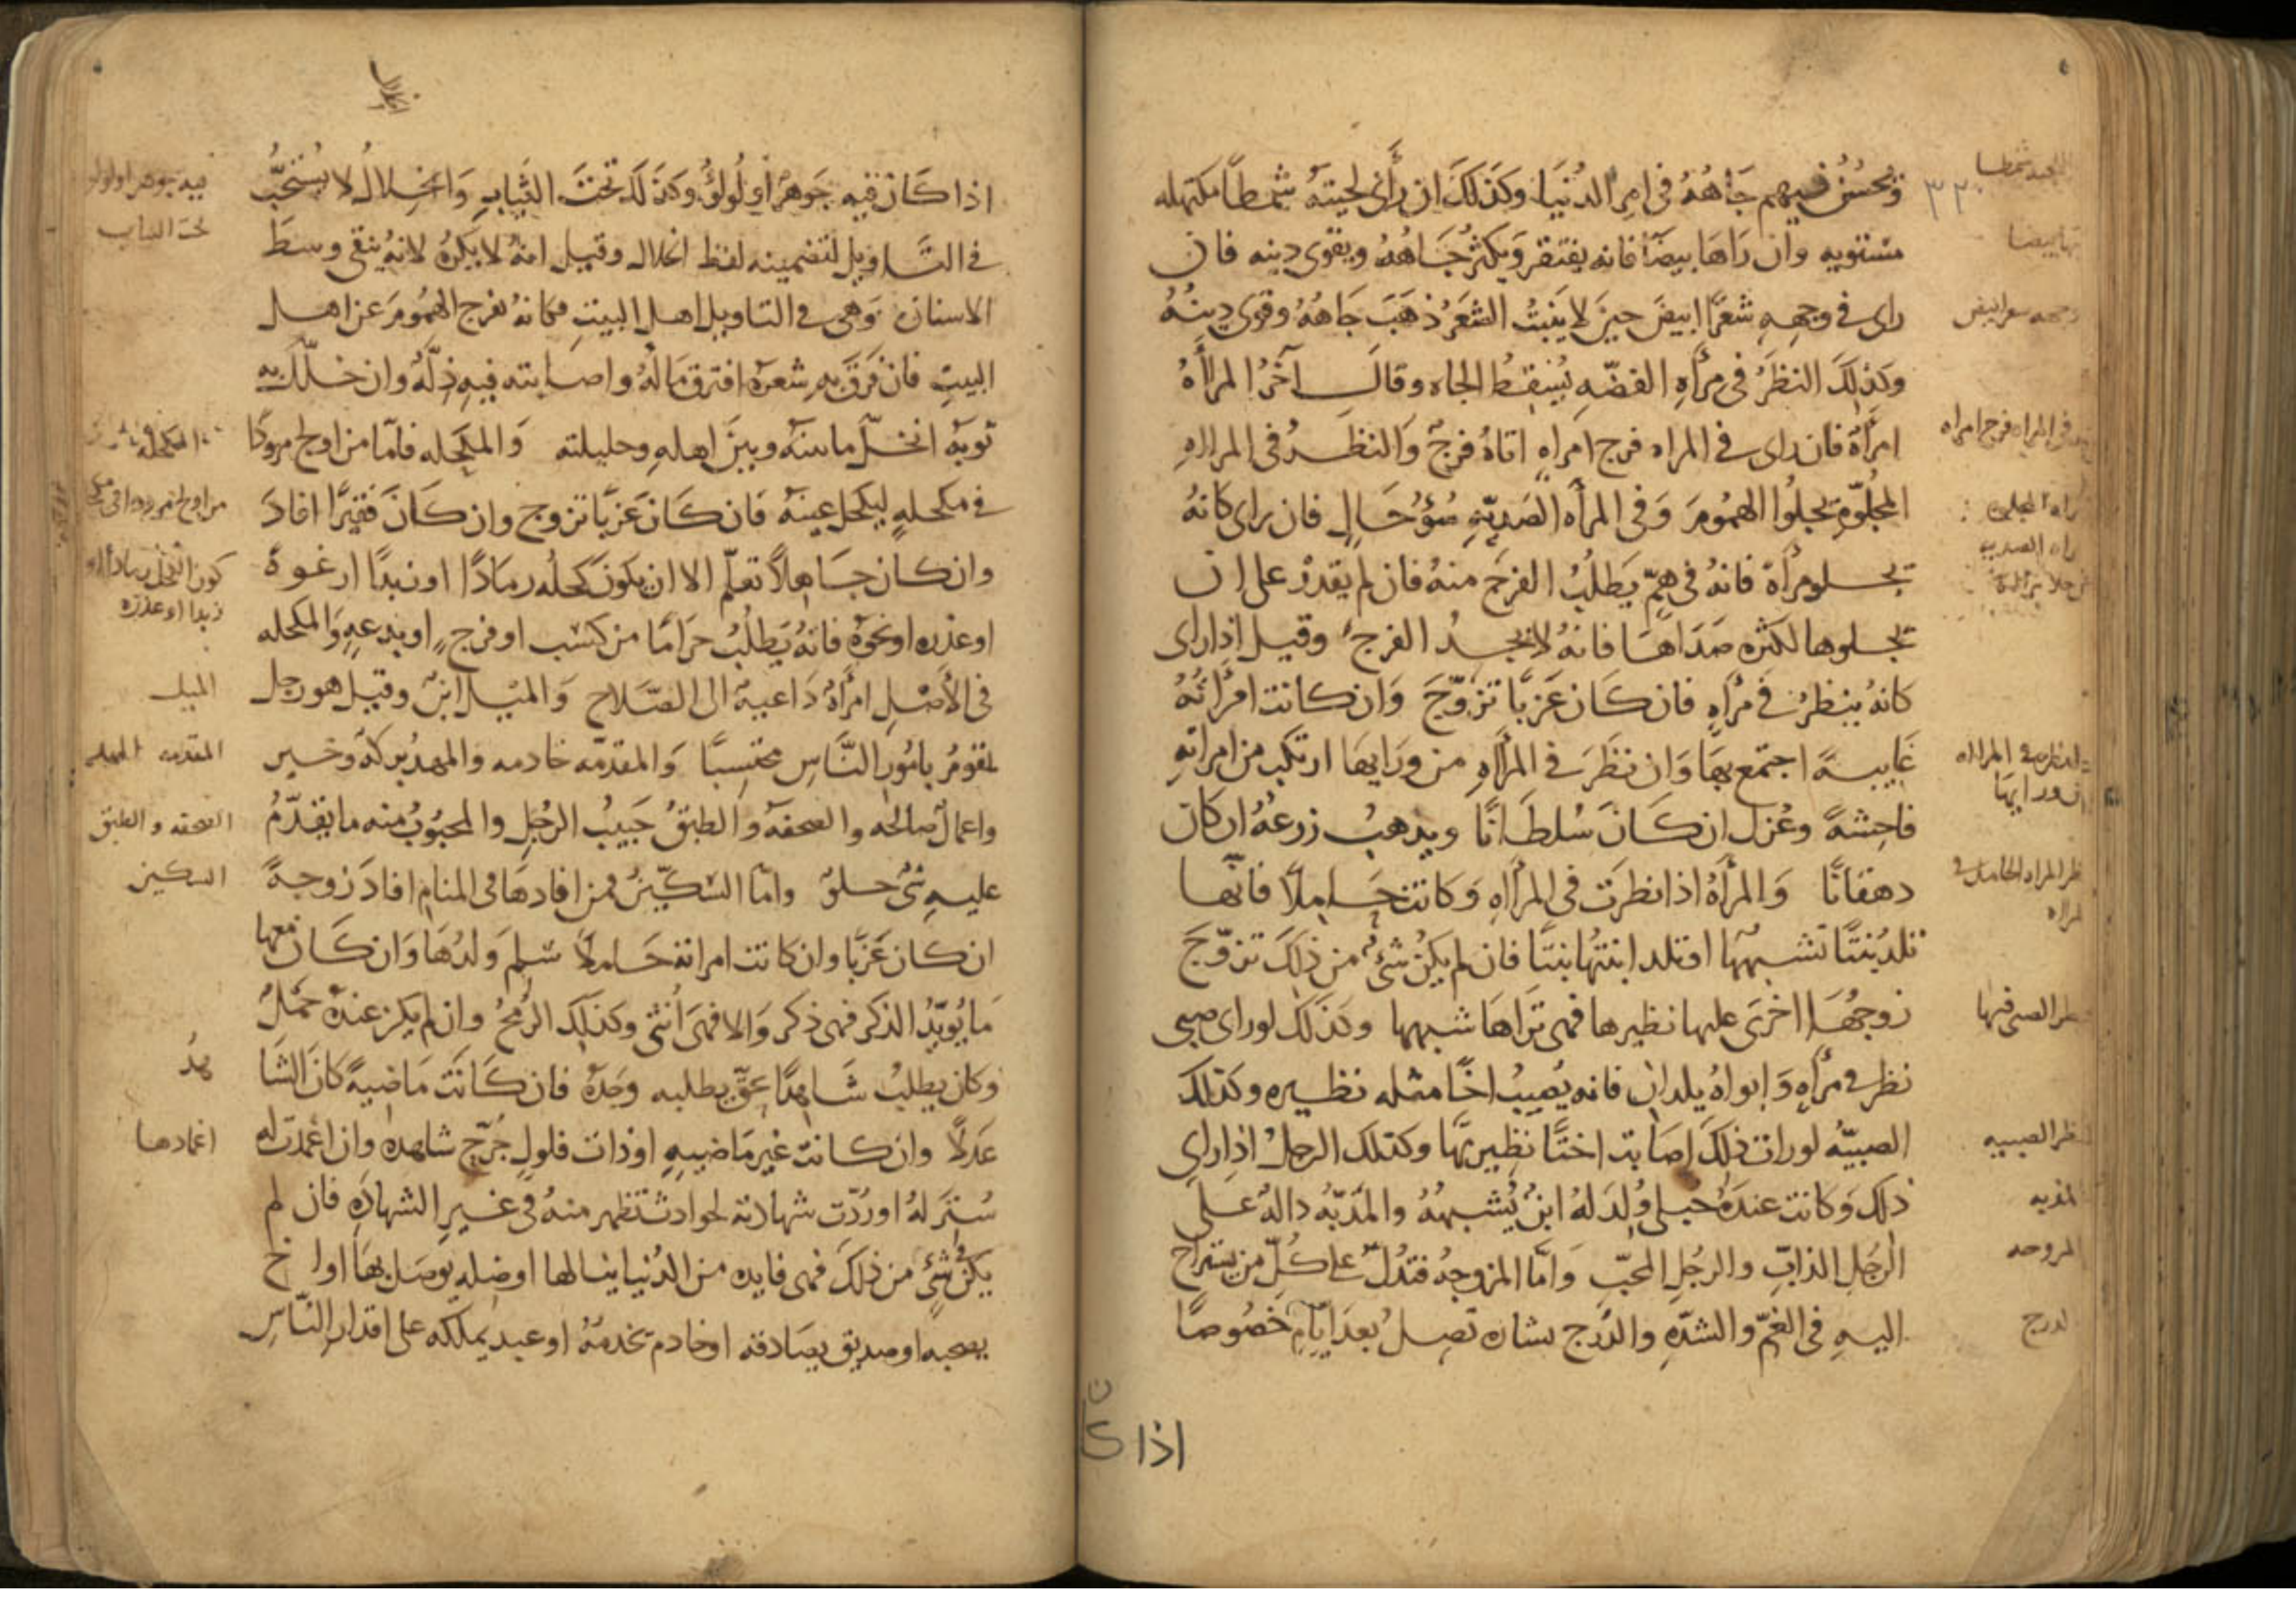 ويحسن فيهم جَاهُهُ في امر الدُنيَا وكذلكَ ان رأى لحيتهُ شمطاً مكتهله
مستويه وان رَاهَا بيضَآ فانه يفتقر وَيكثرُ جَاهُهُ ويقوى دينه فان
راى في وجههِ شعرًا ابيضَ حيثَ لا يَنبتُ الشعَرُ ذهَبَ جَاهُهُ وقوى دِينُهُ
وكذلكَ النظرُ في مرأهِ الفضّهِ يُسْقِطُ الجاه وقالَ آخَرُ المرأَهُ
امرأهٌ فان راى في المراه فرج امراهٍ اتاهُ فرجٌ وَالنظرُ في المراهِ
المجلوّهِ يجلوا الهمُومَ وَفي المرأه الصَديّهِ سُؤُ حَالٍ فان راى كانهُ
يجلو مرأةً فانهُ في همٍّ يَطلبُ الفرجَ منهُ فان لم يقدرْ على ان
يجلوها لكثره صَدَاهَا فانهُ لا يجدُ الفرج وقيل اذا راى
كانهُ ينظرُ في مرأهٍ فان كَانَ عَزبًا تزوّجَ وَان كانت امرأتهُ
غَايبهً اجتمع بهَا وَان نظَرَ في المرأهِ من ورَايهَا ارتكب من امراتهِ
فاحِشهً وعُزل ان كَانَ سُلطَانًا ويذهبُ زرعُهُ ان كان
دهقانًا وَالمرأهُ اذا نظرَت في المرأهِ وَكانت حَاملاً فانّها
تلدُ بنتًا تشبهُهَا او تلد ابنتُهَا بنتًا فان لم يكن شئٌ من ذلكَ تزوّجَ
زوجُهَا اخرَى عليها نظيرها فهى تَراهَا شبهها وكذلكَ لو راى صبى
نظر في مرأهٍ وَابواهُ يلدان فانه يُصيبُ اخًا مثله نظيره وكذلك
الصبيّهُ لو رات ذلكَ اصَابت اختًا نظيرتهَا وكذلك الرجلُ اذا راى
ذلك وَكانت عندهُ حبلى وُلِدَ لهُ ابنٌ يُشبهُهُ والمذبّهُ دالهٌ على
الرجُلِ الذابِّ والرجُلِ المحبِّ وَامَّا المروحهُ فتدُلّ على كُلِّ من يستراح
اليهِ في الغمّ والشدّهِ والدُرج بشاره تصِلُ بعدَ ايّامٍ خصُوصًا
اذا كان
اذا كَانَ فيهِ جَوهرٌ او لُولؤٌ وكذلك تحتَ الثيَابِ وَالخِلالُ لا يُستحَبُّ
في التَّاويل لتضمينه لفظ الخلال وقيل انهُ لا يكرهُ لانهُ ينقى وسطَ
الاسنان وَهى في التاويل اهل البيتِ فكانهُ يفرج الهمُومَ عن اهل
البيتِ فان فَرَّقَ بهِ شعرَهُ افترق مَالهُ واصابته فيهِ ذِلّهٌ وان خلّلَ به
ثوبَهُ انخلّ ما بينهُ وبينَ اهلهِ وحليلته وَالمكحَله فامّا من اولج مرودًا
في مكحلهٍ ليكحل عينهُ فان كَانَ عَزبًا تزوج وان كَانَ فقيرًا افادَ
وان كان جَاهلاً تعلّم الا ان يكونَ كحلُهُ رمَادًا او زبدًا او رغوةً
او عذره او نحوَهُ فانهُ يَطلبُ حرَامًا من كسَب او فرج او بدعهٍ وَالمكحله
في الأصْلِ امرأهٌ دَاعيهٌ الى الصّلاح وَالميْل ابنٌ وقيل هو رجل
يقومُ بامُور النَّاسِ محتسِبًا وَالمقدمّه خادمه وَالمهدُ بركهٌ وخير
واعمالٌ صالحه والصحفهُ والطبقُ حَبيبُ الرجُلِ والمحبُوبُ منه ما يقدّمُ
عليهِ شئٌ حلوٌ وامّا السّكّينُ فمن افادهَا في المنام افادَ زوجهً
ان كان عَزبًا وان كانت امراته حَاملاً سَلِمَ وَلدُهَا وَان كَانَ معها
مَا يُويّدُ الذكر فهى ذكر وَالا فهىَ اُنثى وكذلك الرُمحُ وان لم يكن عندهُ حَملٌ
وكان يطلبُ شَاهدًا بحقّ يطلبه وجَدَهُ فان كَانَت مَاضيهً كانَ الشا
هدُ
عَدلًا وان كانت غيرمَاضيهٍ او ذات فلولٍ جُرّحَ شاهدهُ وان اُغمدَت له
سُتَر لهُ او رُدّت شهادتهُ لحوادث تظهر منهُ في غيرِ الشهادهِ فان لم
يكن في شئٍ من ذلكَ فهى فايده من الدُنيا ينالها او صِلهٍ يُوصَل بهَا او اخ
يصحبه او صديق يصَادقه او خادم تخدمهُ او عبد يملكه على اقدار النّاسِ
الميل
الصحفه و الطبق
السكين
اغمادها